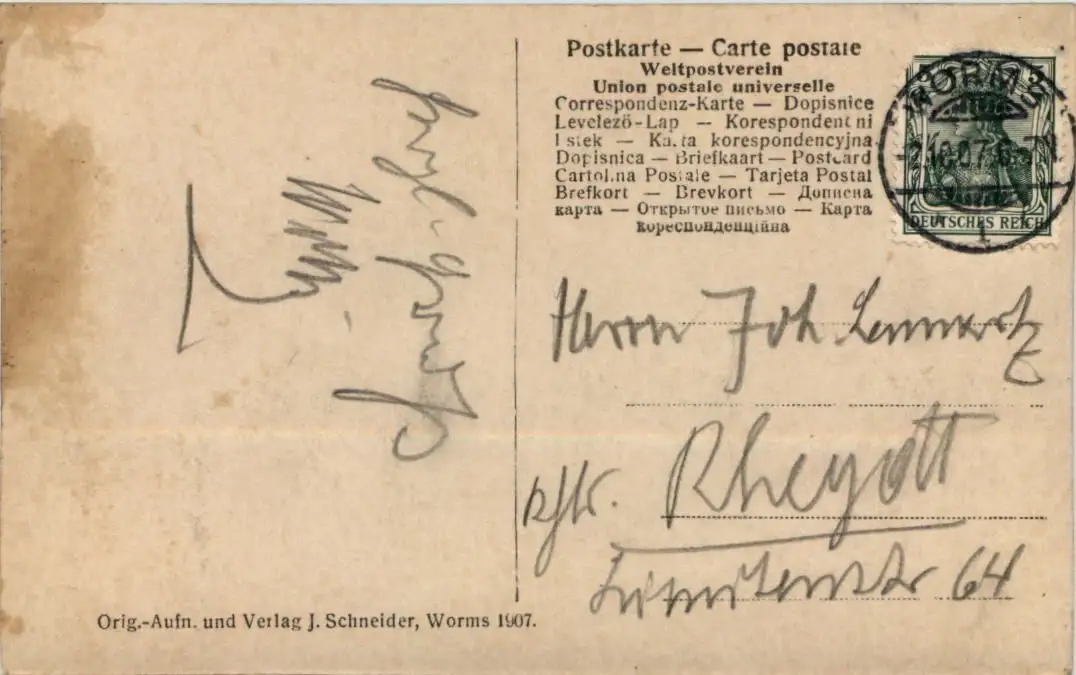 Postkarte — Carte postale
Weltpostverein
Union postale universelle
Correspondenz-Karte — Dopisnice
Levelező-Lap — Korespondencni
listek — Karta korespondencyjna
Dopisnica — Briefkaart — Postcard
Cartolina Postale — Tarjeta Postal
Brefkort — Brevkort — Дописна
карта — Открытое письмо — Карта
кореспонденційна
WORMS
DEUTSCHES REICH
Herrn Joh Lennartz
Rheydt
64
Orig.-Aufn. und Verlag J. Schneider, Worms 1907.